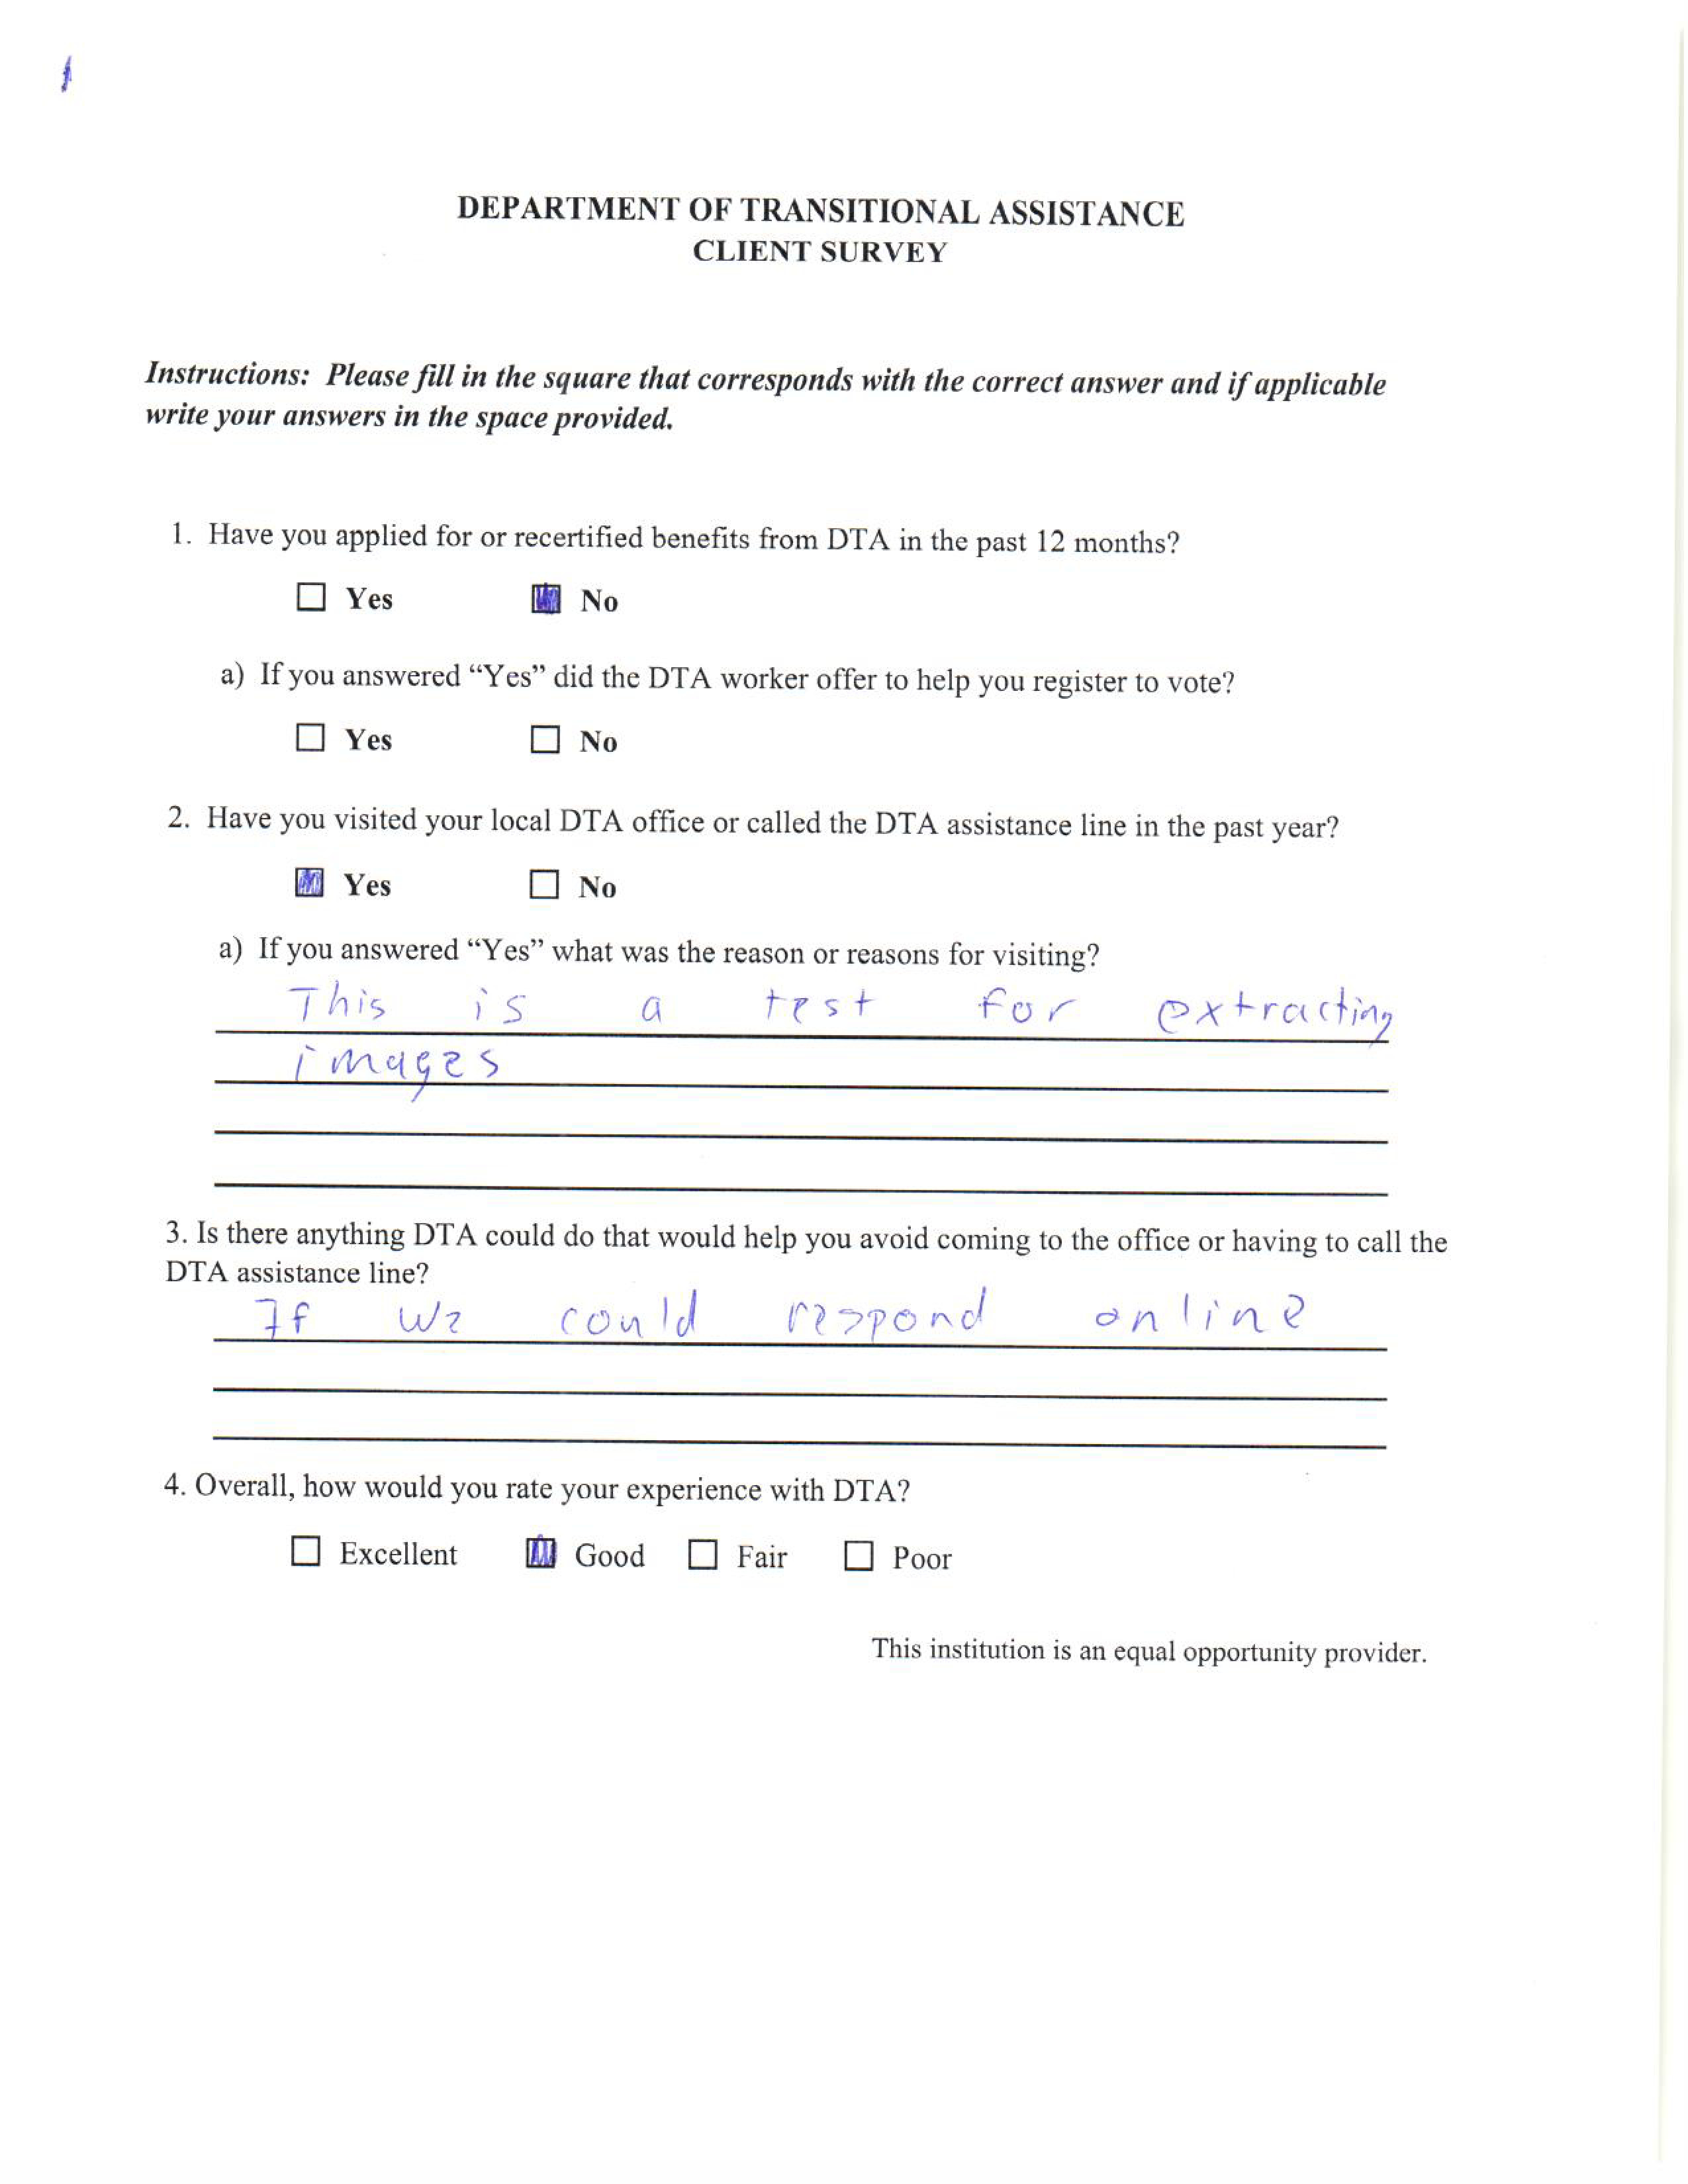 1
DEPARTMENT OF TRANSITIONAL ASSISTANCE
CLIENT SURVEY
Instructions: Please fill in the square that corresponds with the correct answer and if applicable
write your answers in the space provided.
1. Have you applied for or recertified benefits from DTA in the past 12 months?
☐ Yes ☒ No
a) If you answered “Yes” did the DTA worker offer to help you register to vote?
☐ Yes ☐ No
2. Have you visited your local DTA office or called the DTA assistance line in the past year?
☒ Yes ☐ No
a) If you answered “Yes” what was the reason or reasons for visiting?
This is a test for extracting
images
3. Is there anything DTA could do that would help you avoid coming to the office or having to call the
DTA assistance line?
If we could respond online
4. Overall, how would you rate your experience with DTA?
☐ Excellent ☒ Good ☐ Fair ☐ Poor
This institution is an equal opportunity provider.